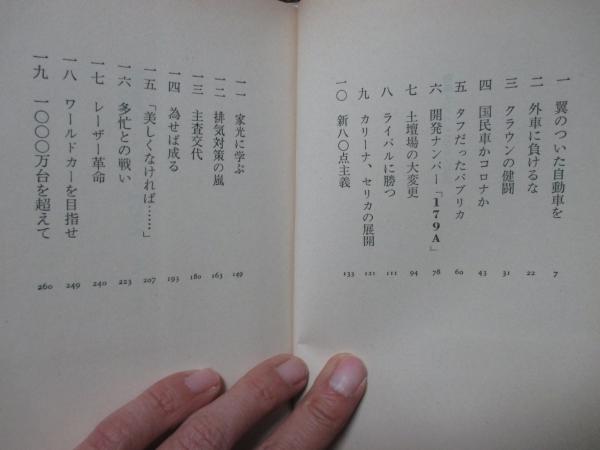 一 翼のついた自動車を 7
二 外車に負けるな 22
三 クラウンの健闘 31
四 国民車かコロナか 43
五 タフだったパブリカ 60
六 開発ナンバー「179A」 78
七 土壇場の大変更 94
八 ライバルに勝つ 111
九 カリーナ、セリカの展開 121
一〇 新八〇点主義 133
一一 家光に学ぶ 149
一二 排気対策の嵐 163
一三 主査交代 180
一四 為せば成る 193
一五 「美しくなければ……」 207
一六 多忙との戦い 223
一七 レーザー革命 240
一八 ワールドカーを目指せ 249
一九 一〇〇〇万台を超えて 260